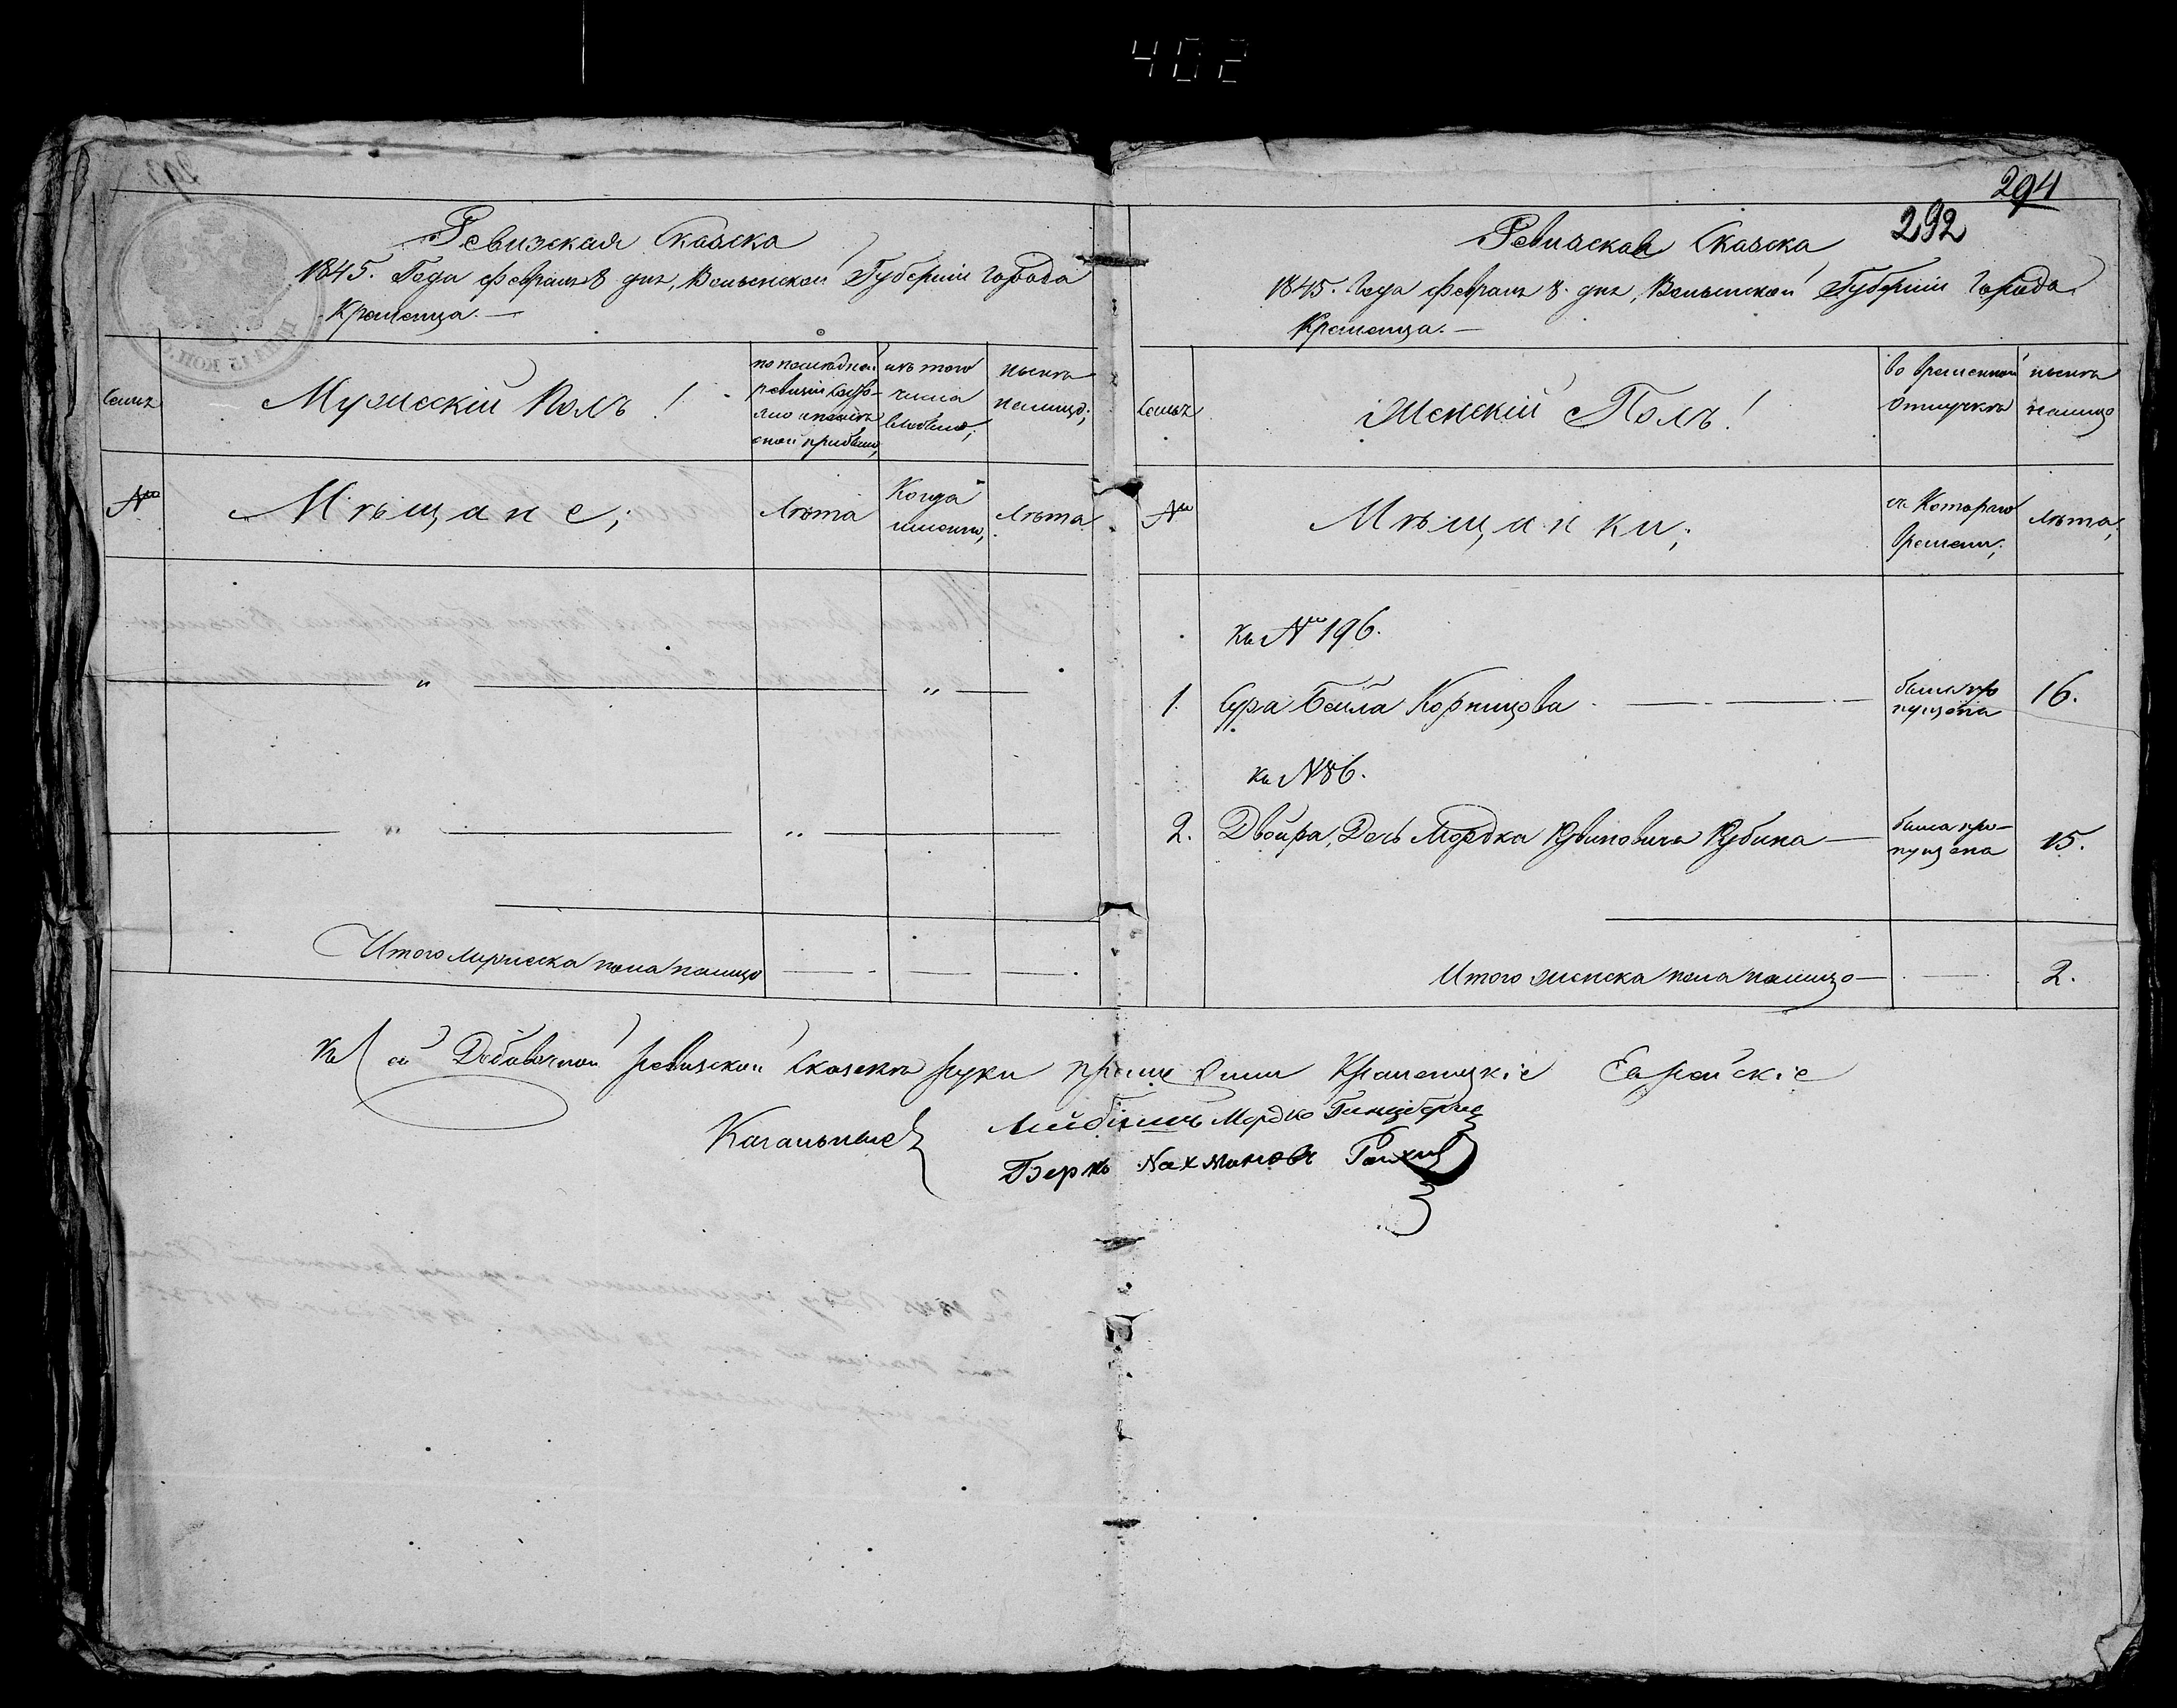 402
Ревизская Сказка
1845. Года Февраля 8 дня, Волынской Губерніи города
Кременца.
Семья
Мужескій Полъ!
по последней ревизіи состояло и после оной прибыло;
изъ того числа выбыло;
ныне на лицо;
№
Мѣщане;
Лѣта
Когда именно,
Лѣта
"
"
"
"
Итого мужеска пола на лицо
294
292
Ревизская Сказка
1845. Года Февраля 8. дня, Волынской Губерніи Города
Кременца.
Семья
Женскій Полъ!
Во временной отлучкѣ
ныне на лицо
№
Мѣщанки;
съ Котораго времени;
Лѣта;
къ № 196.
1. Сура Бейла Корницова была пропущена 16.
къ № 86.
2. Двойра, Дочь Мордка Рувиновича Рубина была про-пущена 15.
Итого женска пола на лицо 2.
Къ сей Добавочной ревизской сказкѣ руки приложили Кременецкіе Еврейскіе
Кагальные
Лейбишъ Мордко Гинцбергъ
Берко Нахманов